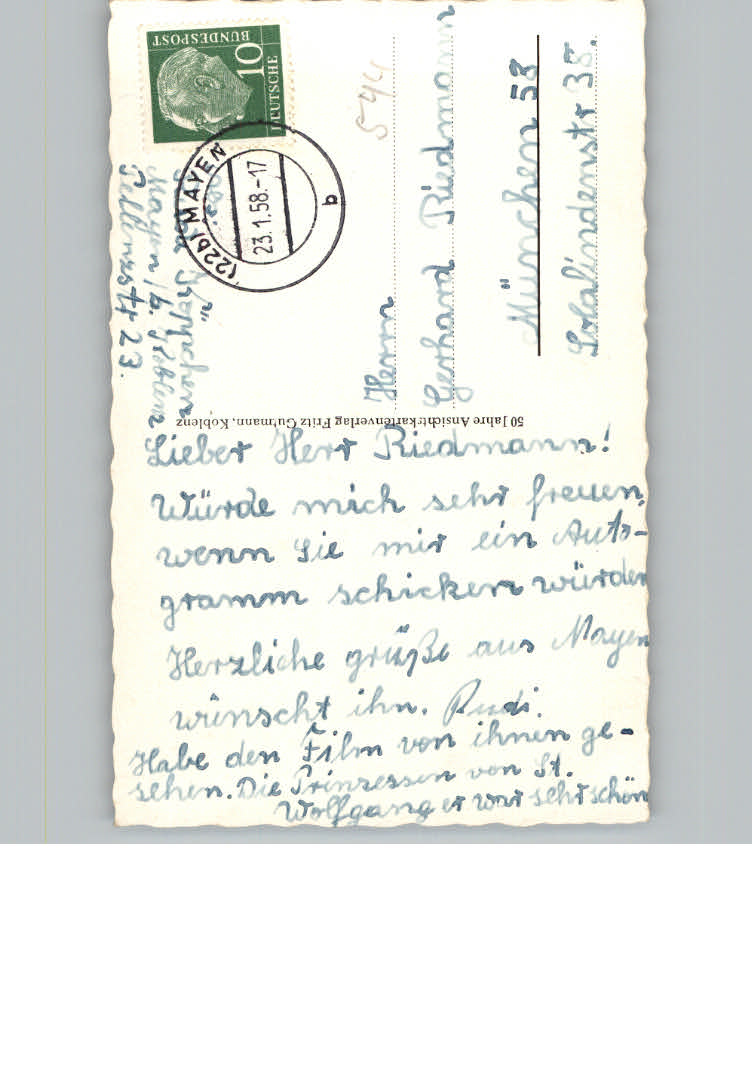 Lieber Herr Riedmann!
Würde mich sehr freuen,
wenn Sie mir ein Auto-
gramm schicken würden
Herzliche grüße aus Mayen
wünscht ihn. Rudi.
Habe den Film von ihnen ge-
sehen. Die Prinzessen von St.
Wolfgang er war sehr schön
50 Jahre Ansichtskartenverlag Fritz Gutmann, Koblenz
Mayen/b. Koblenz
23.
DEUTSCHE
BUNDESPOST
10
(22b) MAYEN
23.1.58.-17
b
544
Herrn
Gerhard Riedmann
München 58
38.